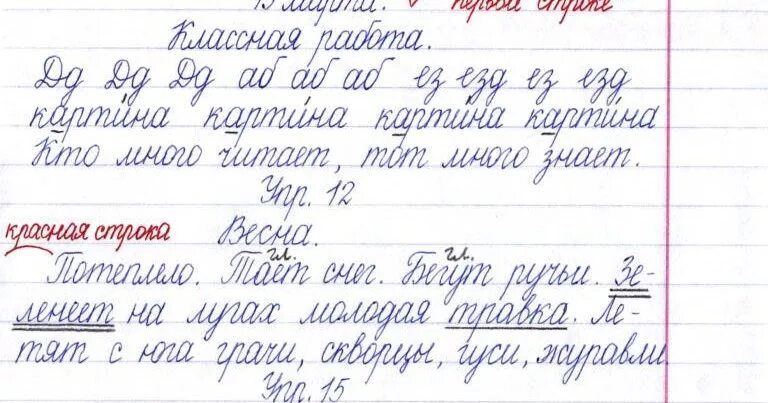 15 марта. первой строке
Классная работа.
Дд Дд Дд аб аб аб ез езд ез езд
карти́на карти́на карти́на карти́на
Кто много читает, тот много знает.
Упр. 12
красная строка Весна.
гл. гл.
Потеплело. Тает снег. Бегут ручьи. Зе-
ленеет на лугах молодая травка. Ле-
тят с юга грачи, скворцы, гуси, журавли.
Упр. 15